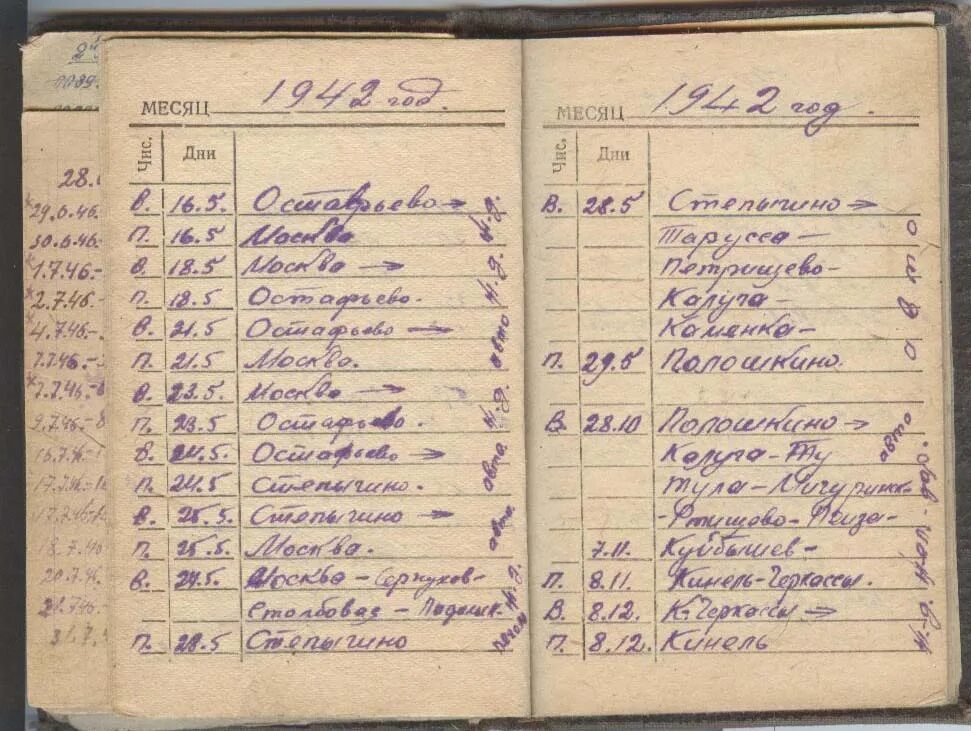 2
28.
29.6.46.
30.6.46.
1.7.46.-
2.7.46.-
4.7.46.-
7.7.46.-
7.7.46.-
9.7.46.-
16.7.46
17.7.46
17.7.46
18.7.46
20.7.46.
21.7.46.
МЕСЯЦ 1942 год.
Чис. Дни
В. 16.5. Остафьево → ж.д.
П. 16.5 Москва
В. 18.5 Москва → ж.д.
П. 18.5 Остафьево.
В. 21.5 Остафьево → авто
П. 21.5 Москва.
В. 23.5. Москва → ж.д.
П. 23.5 Остафьево.
В. 24.5. Остафьево → авто.
П. 24.5 Степыгино.
В. 25.5. Степыгино → авто
П. 25.5. Москва.
В. 27.5. Москва - Серпухов- ж.д.
Столбовая - Подольск- пешком
П. 28.5 Степыгино
МЕСЯЦ 1942 год.
Чис. Дни
В. 28.5 Степыгино → авто
Тарусса -
Петрищево-
Калуга-
Каменка-
П. 29.5 Полошкино.
В. 28.10 Полошкино → авто
Калуга-Ту
Тула-Мичуринск- ж.-д.
-Ртищево-Пенза-
7.11. Куйбышев-
П. 8.11. Кинель-Черкассы.
В. 8.12. К-Черкассы →
П. 8.12. Кинель